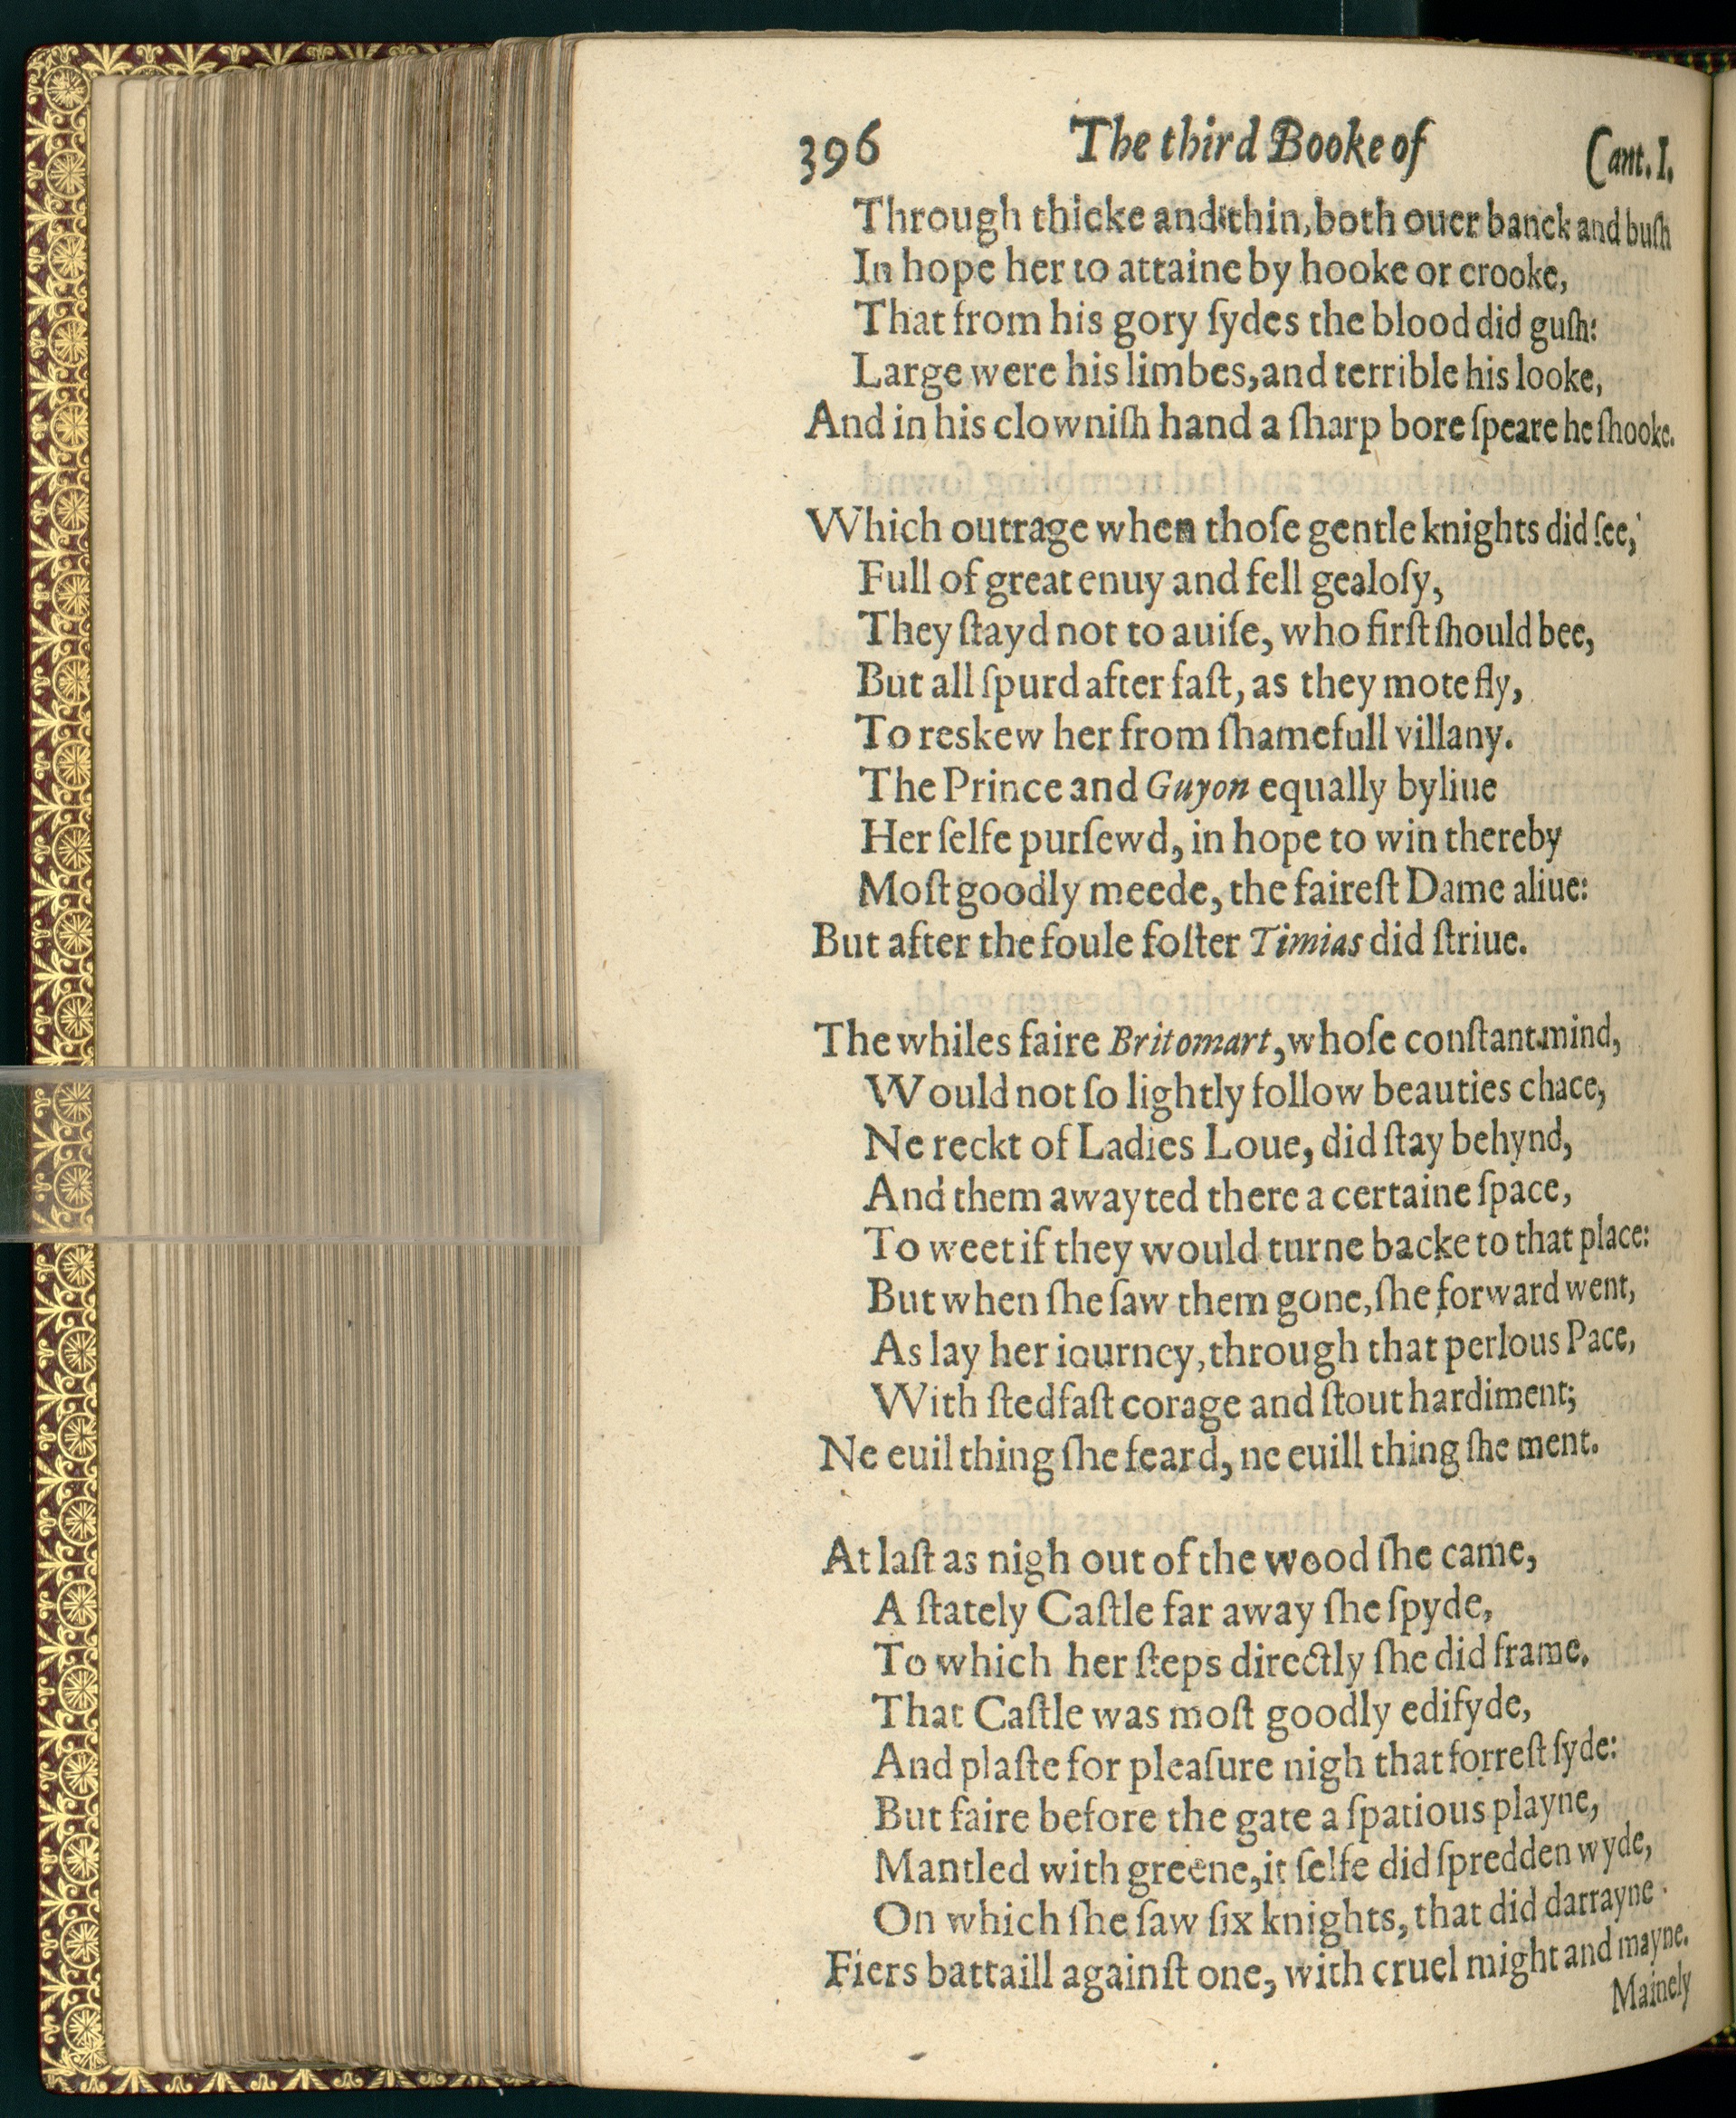 396 The third Booke of Cant. I.
Through thicke and thin, both ouer banck and buſh
In hope her to attaine by hooke or crooke,
That from his gory ſydes the blood did guſh:
Large were his limbes, and terrible his looke,
And in his clowniſh hand a ſharp bore ſpeare he ſhooke.
Which outrage when thoſe gentle knights did ſee,
Full of great enuy and fell gealoſy,
They ſtayd not to auiſe, who firſt ſhould bee,
But all ſpurd after faſt, as they mote fly,
To reskew her from ſhamefull villany.
The Prince and Guyon equally byliue
Her ſelfe purſewd, in hope to win thereby
Moſt goodly meede, the faireſt Dame aliue:
But after the foule foſter Timias did ſtriue.
The whiles faire Britomart, whoſe conſtant mind,
Would not ſo lightly follow beauties chace,
Ne reckt of Ladies Loue, did ſtay behynd,
And them awayted there a certaine ſpace,
To weet if they would turne backe to that place:
But when ſhe ſaw them gone, ſhe forward went,
As lay her iourney, through that perlous Pace,
With ſtedfaſt corage and ſtout hardiment;
Ne euil thing ſhe feard, ne euill thing ſhe ment.
At laſt as nigh out of the wood ſhe came,
A ſtately Caſtle far away ſhe ſpyde,
To which her ſteps directly ſhe did frame.
That Caſtle was moſt goodly edifyde,
And plaſte for pleaſure nigh that forreſt ſyde:
But faire before the gate a ſpatious playne,
Mantled with greene, it ſelfe did ſpredden wyde,
On which ſhe ſaw ſix knights, that did darrayne
Fiers battaill againſt one, with cruel might and mayne.
Mainely